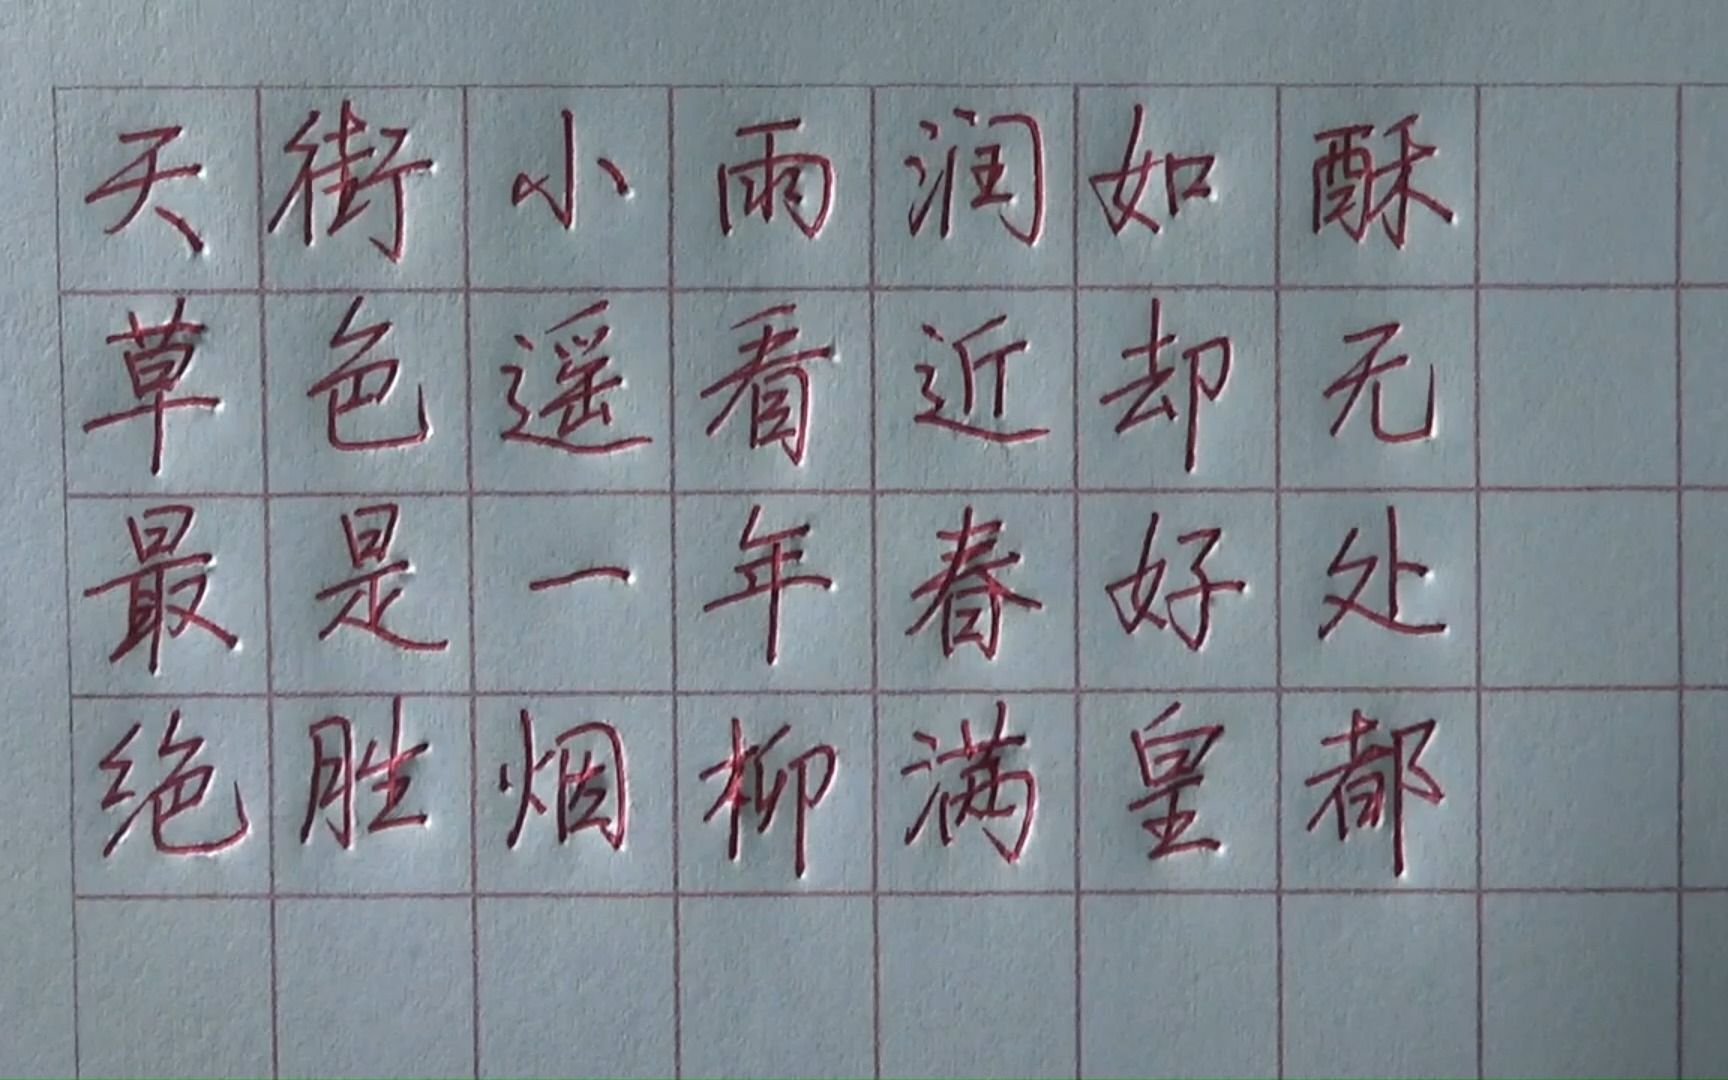 天街小雨润如酥
草色遥看近却无
最是一年春好处
绝胜烟柳满皇都